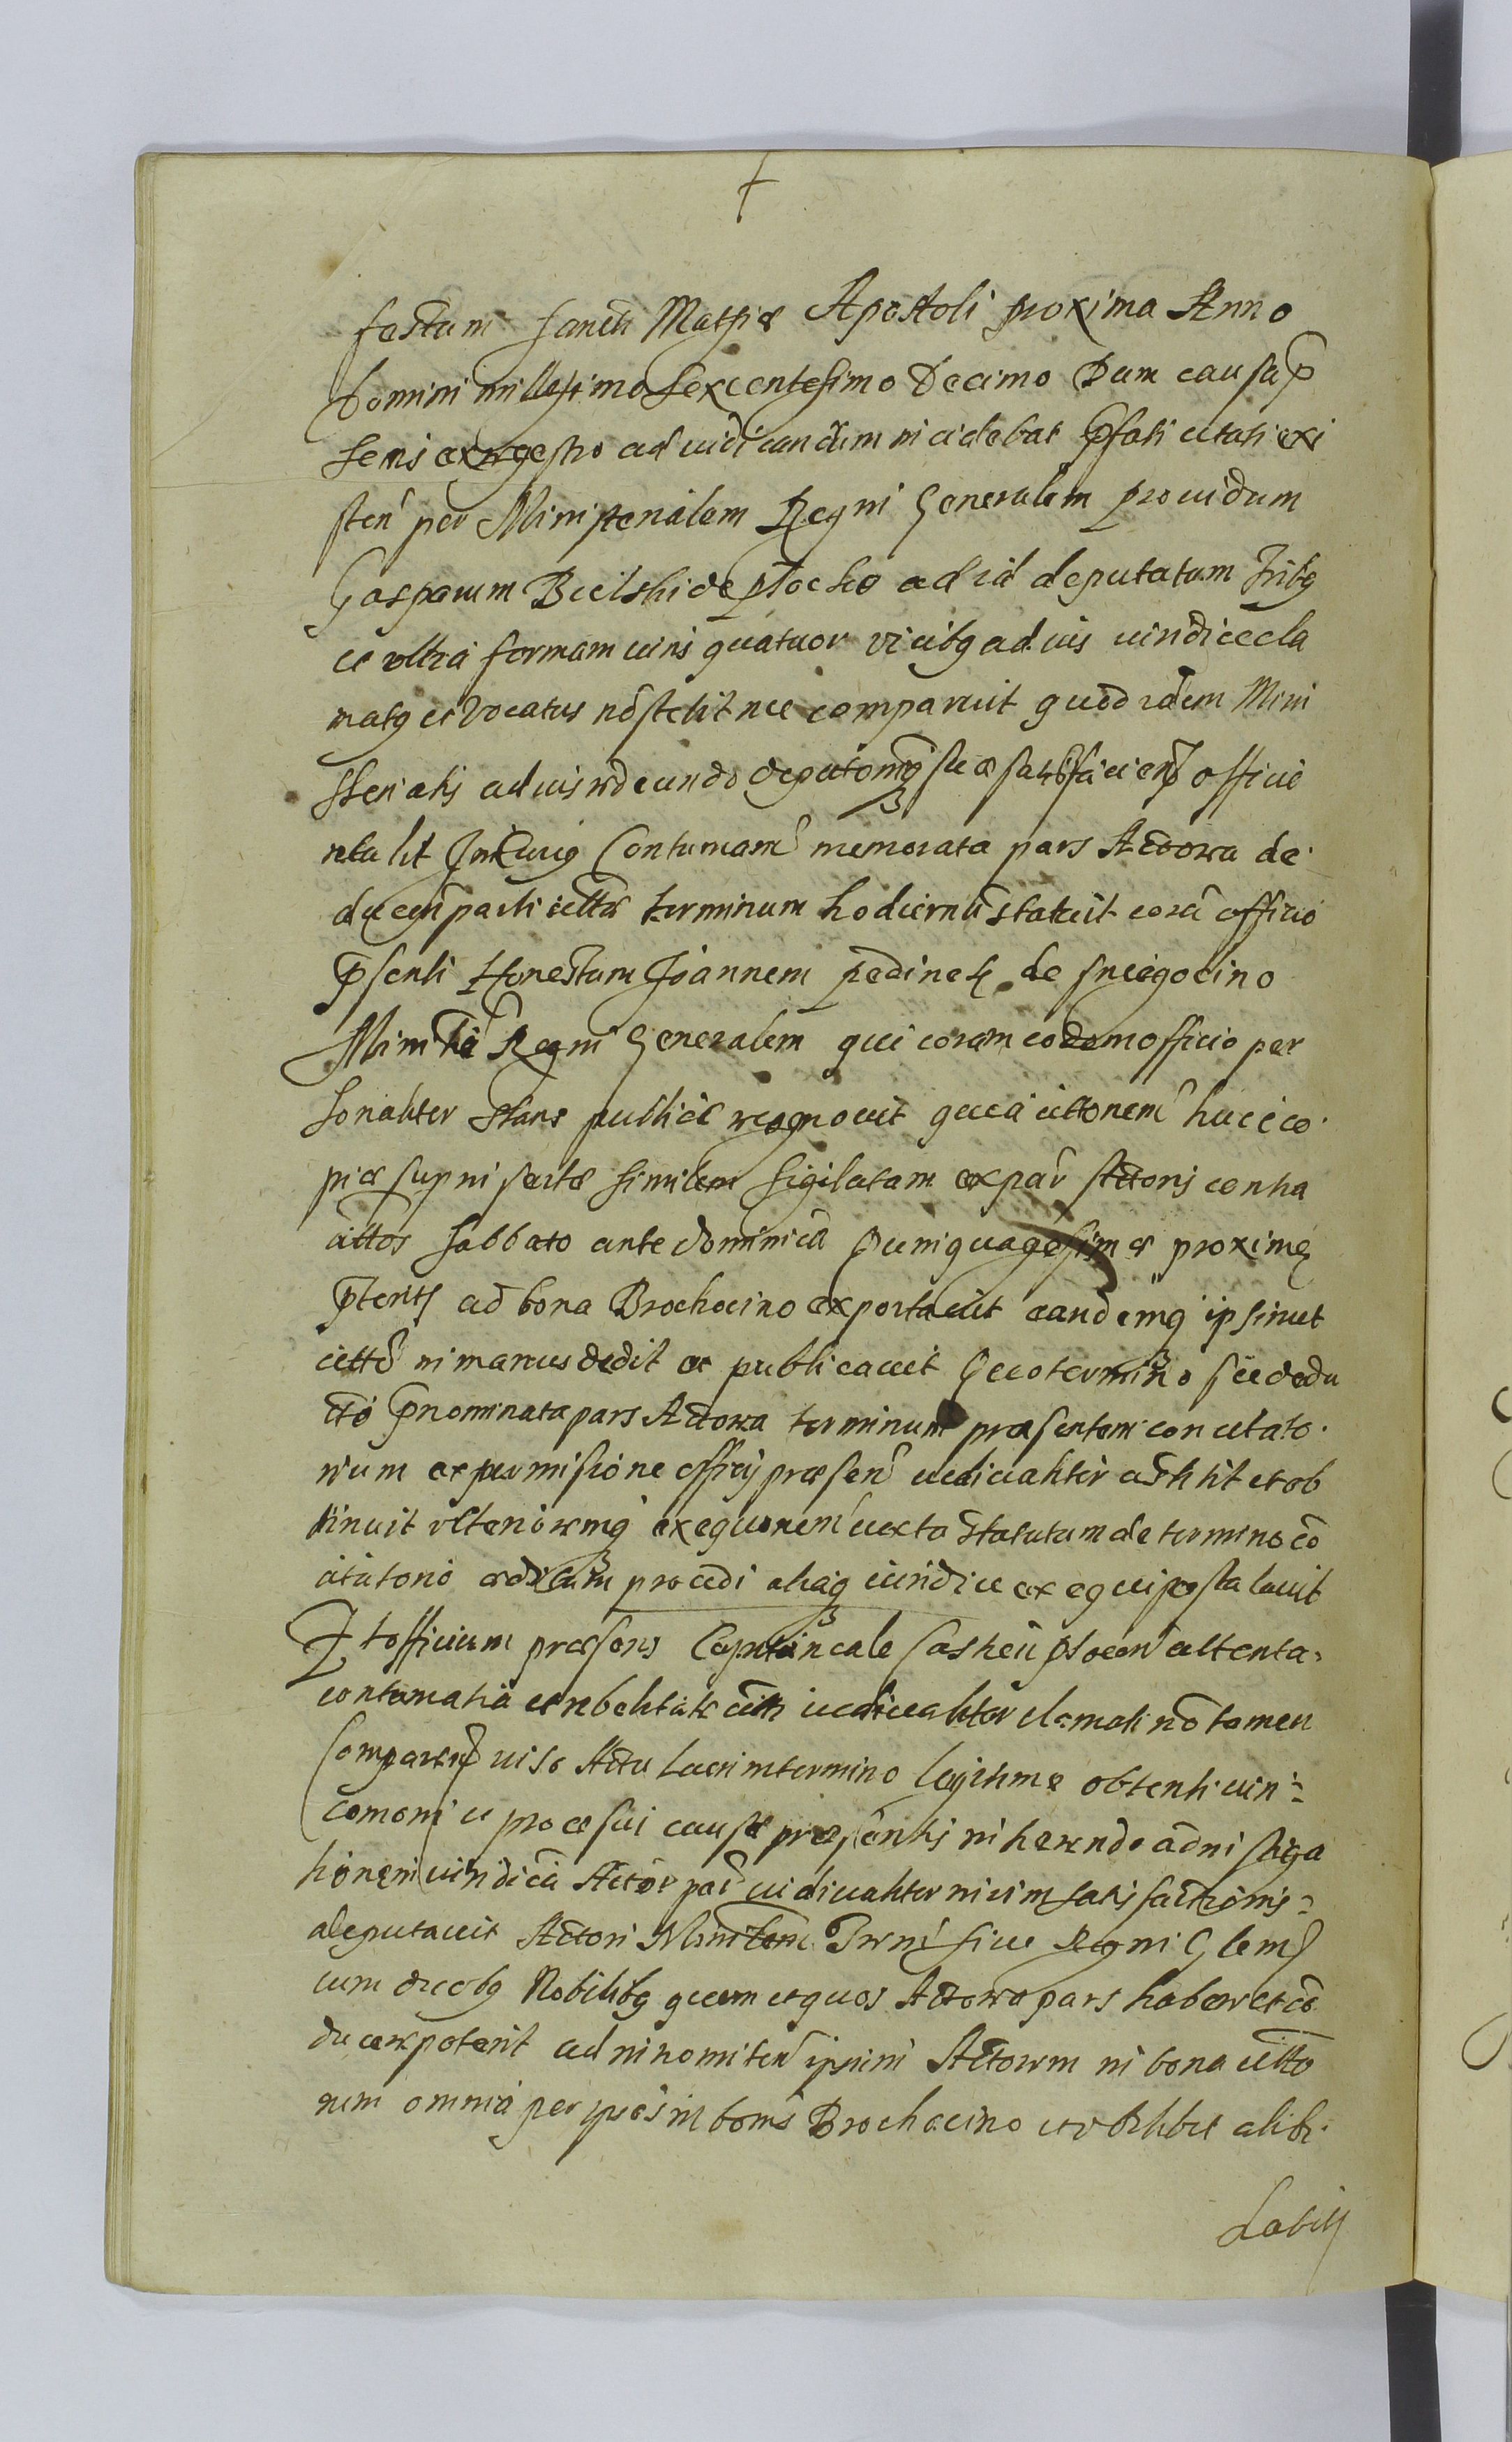 festum sancti Mathiæ Apostoli proxima Anno
Domini millesimo sexcentesimo Decimo Dum causa p̄
sens ex regestro ad iudicandum incidebat p̄fati citati exi
sten̄ per Ministerialem Regni Generalem prouidum
Gasparum Bielski de Plocko ad id deputatum Tribq
et vltra formam iuris quatuor vicibq ad ius iuridice cla
matq et vocatus nō stetit nec comparuit quod idem Mini
sterialis ad ius deputatoniq suæ satisfaciens officio
retulit In cuiq Contumam̄ memorata pars Actorea de
ducen̄ parti citatæ terminum hodiernū statuit corā officio
p̄senti Honestum Joannem Pedinek de Sniegocino
Regni Generalem qui coram eodem officio per
sonaliter stans publice recognouit quia citonem̄ huic co
piæ sup insertæ similem sigilatam ex par̄ Actoris contra
cittos Sabbato ante dominicā Quinquagesimæ proxime
p̄terit ad bona Brochocino exportauit eandemq ipsimet
citto in manus dedit et publicauit Quo termino sic dedu
cto p̄nominata pars Actorea terminum præsentem concitato
rium ex permissione officij præsen̄ iudicialiter attētit et ob
tinuit vlterioremq exequonem̄ iuxta statutum de termino cō
citatorio procedi aliaq iuridice exequi postulauit
Et officium præsens Capitaneale Castrēn Plocen̄ attenta
contumatia et rebelitate citti iudicialiter clamati nō tamen
Comparen̄ viso Actu lucri in termino legitime obtenti
et processui causæ præsentis inherendo ad instiga
tionem iuridicā Actoreæ par̄ iudicialiter in vim satisfactionis
deputauit Actori Min̄lem Ter̄ni siue Regni Glem̄
cum duobq Nobilibq quem et quos Actorea pars habere et cō
ducere poterit ad ipsium Actorem in bona citto
rum omnia per ipsos in bonis Brochocino et vbilibet alibi
habitt